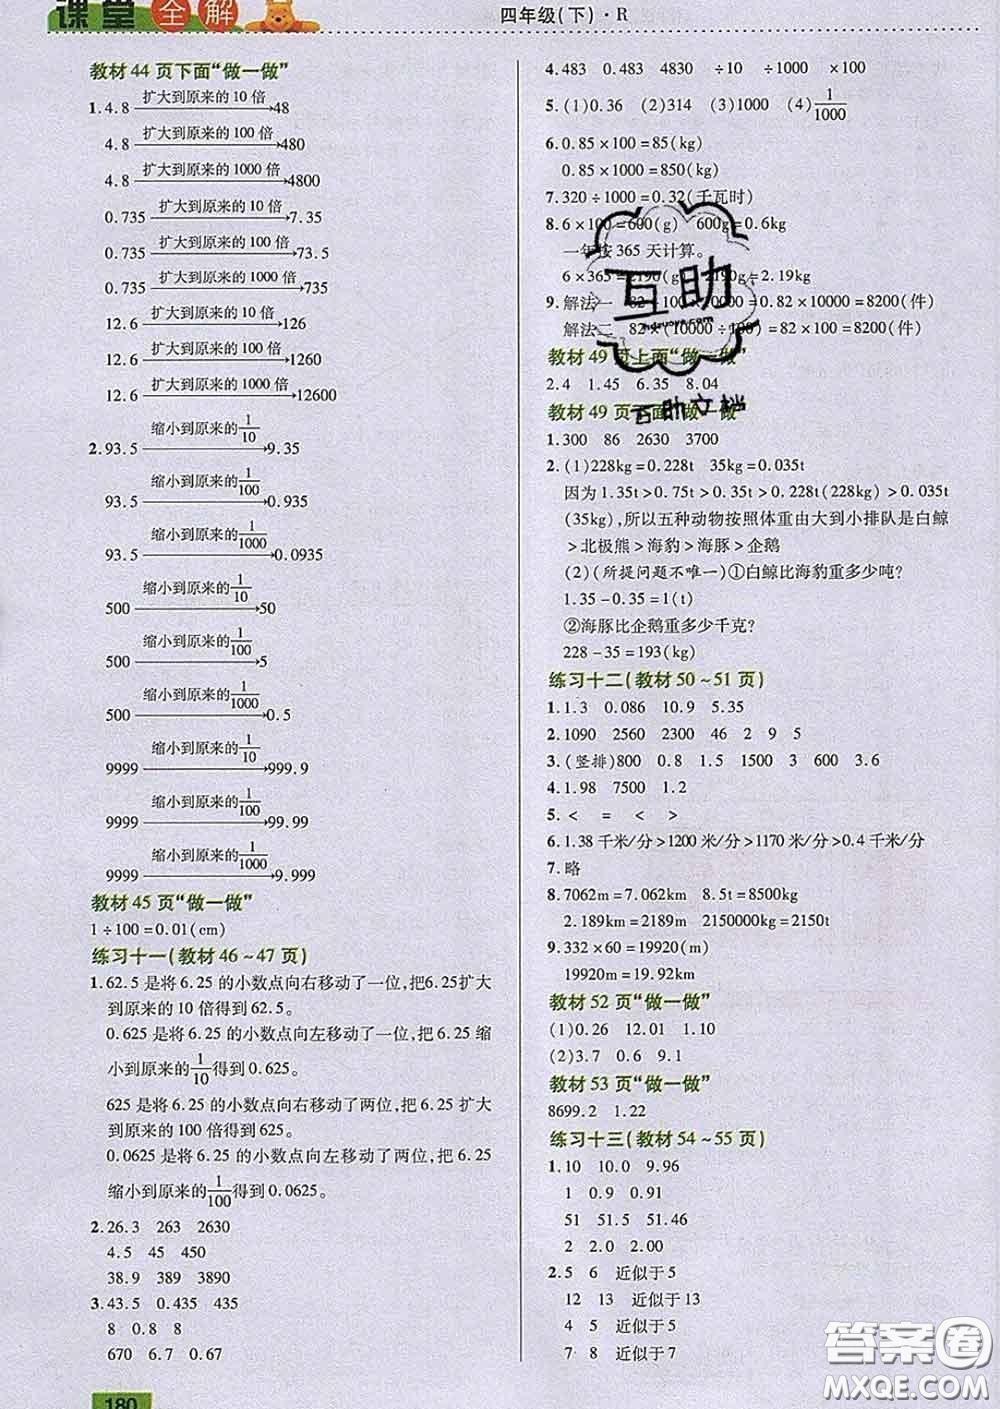 课堂全解
四年级(下)·R
教材 44 页下面“做一做”
1.4.8 扩大到原来的 10 倍→48
4.8 扩大到原来的 100 倍→480
4.8 扩大到原来的 1000 倍→4800
0.735 扩大到原来的 10 倍→7.35
0.735 扩大到原来的 100 倍→73.5
0.735 扩大到原来的 1000 倍→735
12.6 扩大到原来的 10 倍→126
12.6 扩大到原来的 100 倍→1260
12.6 扩大到原来的 1000 倍→12600
2.93.5 缩小到原来的1/10→9.35
93.5 缩小到原来的1/100→0.935
93.5 缩小到原来的1/1000→0.0935
500 缩小到原来的1/10→50
500 缩小到原来的1/100→5
500 缩小到原来的1/1000→0.5
9999 缩小到原来的1/10→999.9
9999 缩小到原来的1/100→99.99
9999 缩小到原来的1/1000→9.999
教材 45 页“做一做”
1÷100=0.01(cm)
练习十一(教材 46~47 页)
1.62.5 是将 6.25 的小数点向右移动了一位,把6.25扩大
到原来的 10 倍得到 62.5。
0.625 是将 6.25 的小数点向左移动了一位,把 6.25 缩
小到原来的1/10得到 0.625。
625 是将 6.25 的小数点向右移动了两位,把 6.25 扩大
到原来的 100 倍得到 625。
0.0625 是将 6.25 的小数点向左移动了两位,把 6.25
缩小到原来的1/100得到 0.0625。
2.26.3 263 2630
4.5 45 450
38.9 389 3890
3.43.5 0.435 435
8 0.8 8
670 6.7 0.67
180
4.483 0.483 4830 ÷10 ÷1000 ×100
5.(1)0.36 (2)314 (3)1000 (4)1/1000
6.0.85×100=85(kg)
0.85×1000=850(kg)
7.320÷1000=0.32(千瓦时)
8.6×100=600(g) 600g=0.6kg
一年按 365 天计算。
6×365=2190(g) 2190g=2.19kg
9.解法一 82÷100×10000=0.82×10000=8200(件)
解法二 82×(10000÷100)=82×100=8200(件)
教材 49 页上面“做一做”
2.4 1.45 6.35 8.04
教材 49 页下面“做一做”
1.300 86 2630 3700
2.(1)228kg=0.228t 35kg=0.035t
因为 1.35t>0.75t>0.35t>0.228t(228kg)>0.035t
(35kg),所以五种动物按照体重由大到小排队是白鲸
>北极熊>海豹>海豚>企鹅
(2)(所提问题不唯一)①白鲸比海豹重多少吨?
1.35-0.35=1(t)
②海豚比企鹅重多少千克?
228-35=193(kg)
练习十二(教材 50~51 页)
1.1.3 0.086 10.9 5.35
2.1090 2560 2300 46 2 9 5
3.(竖排)800 0.8 1.5 1500 3 600 3.6
4.1.98 7500 1.2
5.< = < >
6.1.38 千米/分>1200 米/分>1170 米/分>0.4 千米/分
7.略
8.7062m=7.062km 8.5t=8500kg
2.189km=2189m 2150000kg=2150t
9.332×60=19920(m)
19920m=19.92km
教材 52 页“做一做”
(1)0.26 12.01 1.10
(2)3.7 0.6 9.1
教材 53 页“做一做”
8699.2 1.22
练习十三(教材 54~55 页)
1.10 10.0 9.96
1 0.9 0.91
51 51.5 51.46
2 2.0 2.00
2.5 6 近似于 5
12 13 近似于 13
4 5 近似于 5
7 8 近似于 7
互助
互助文档
答案圈
MXQE.COM